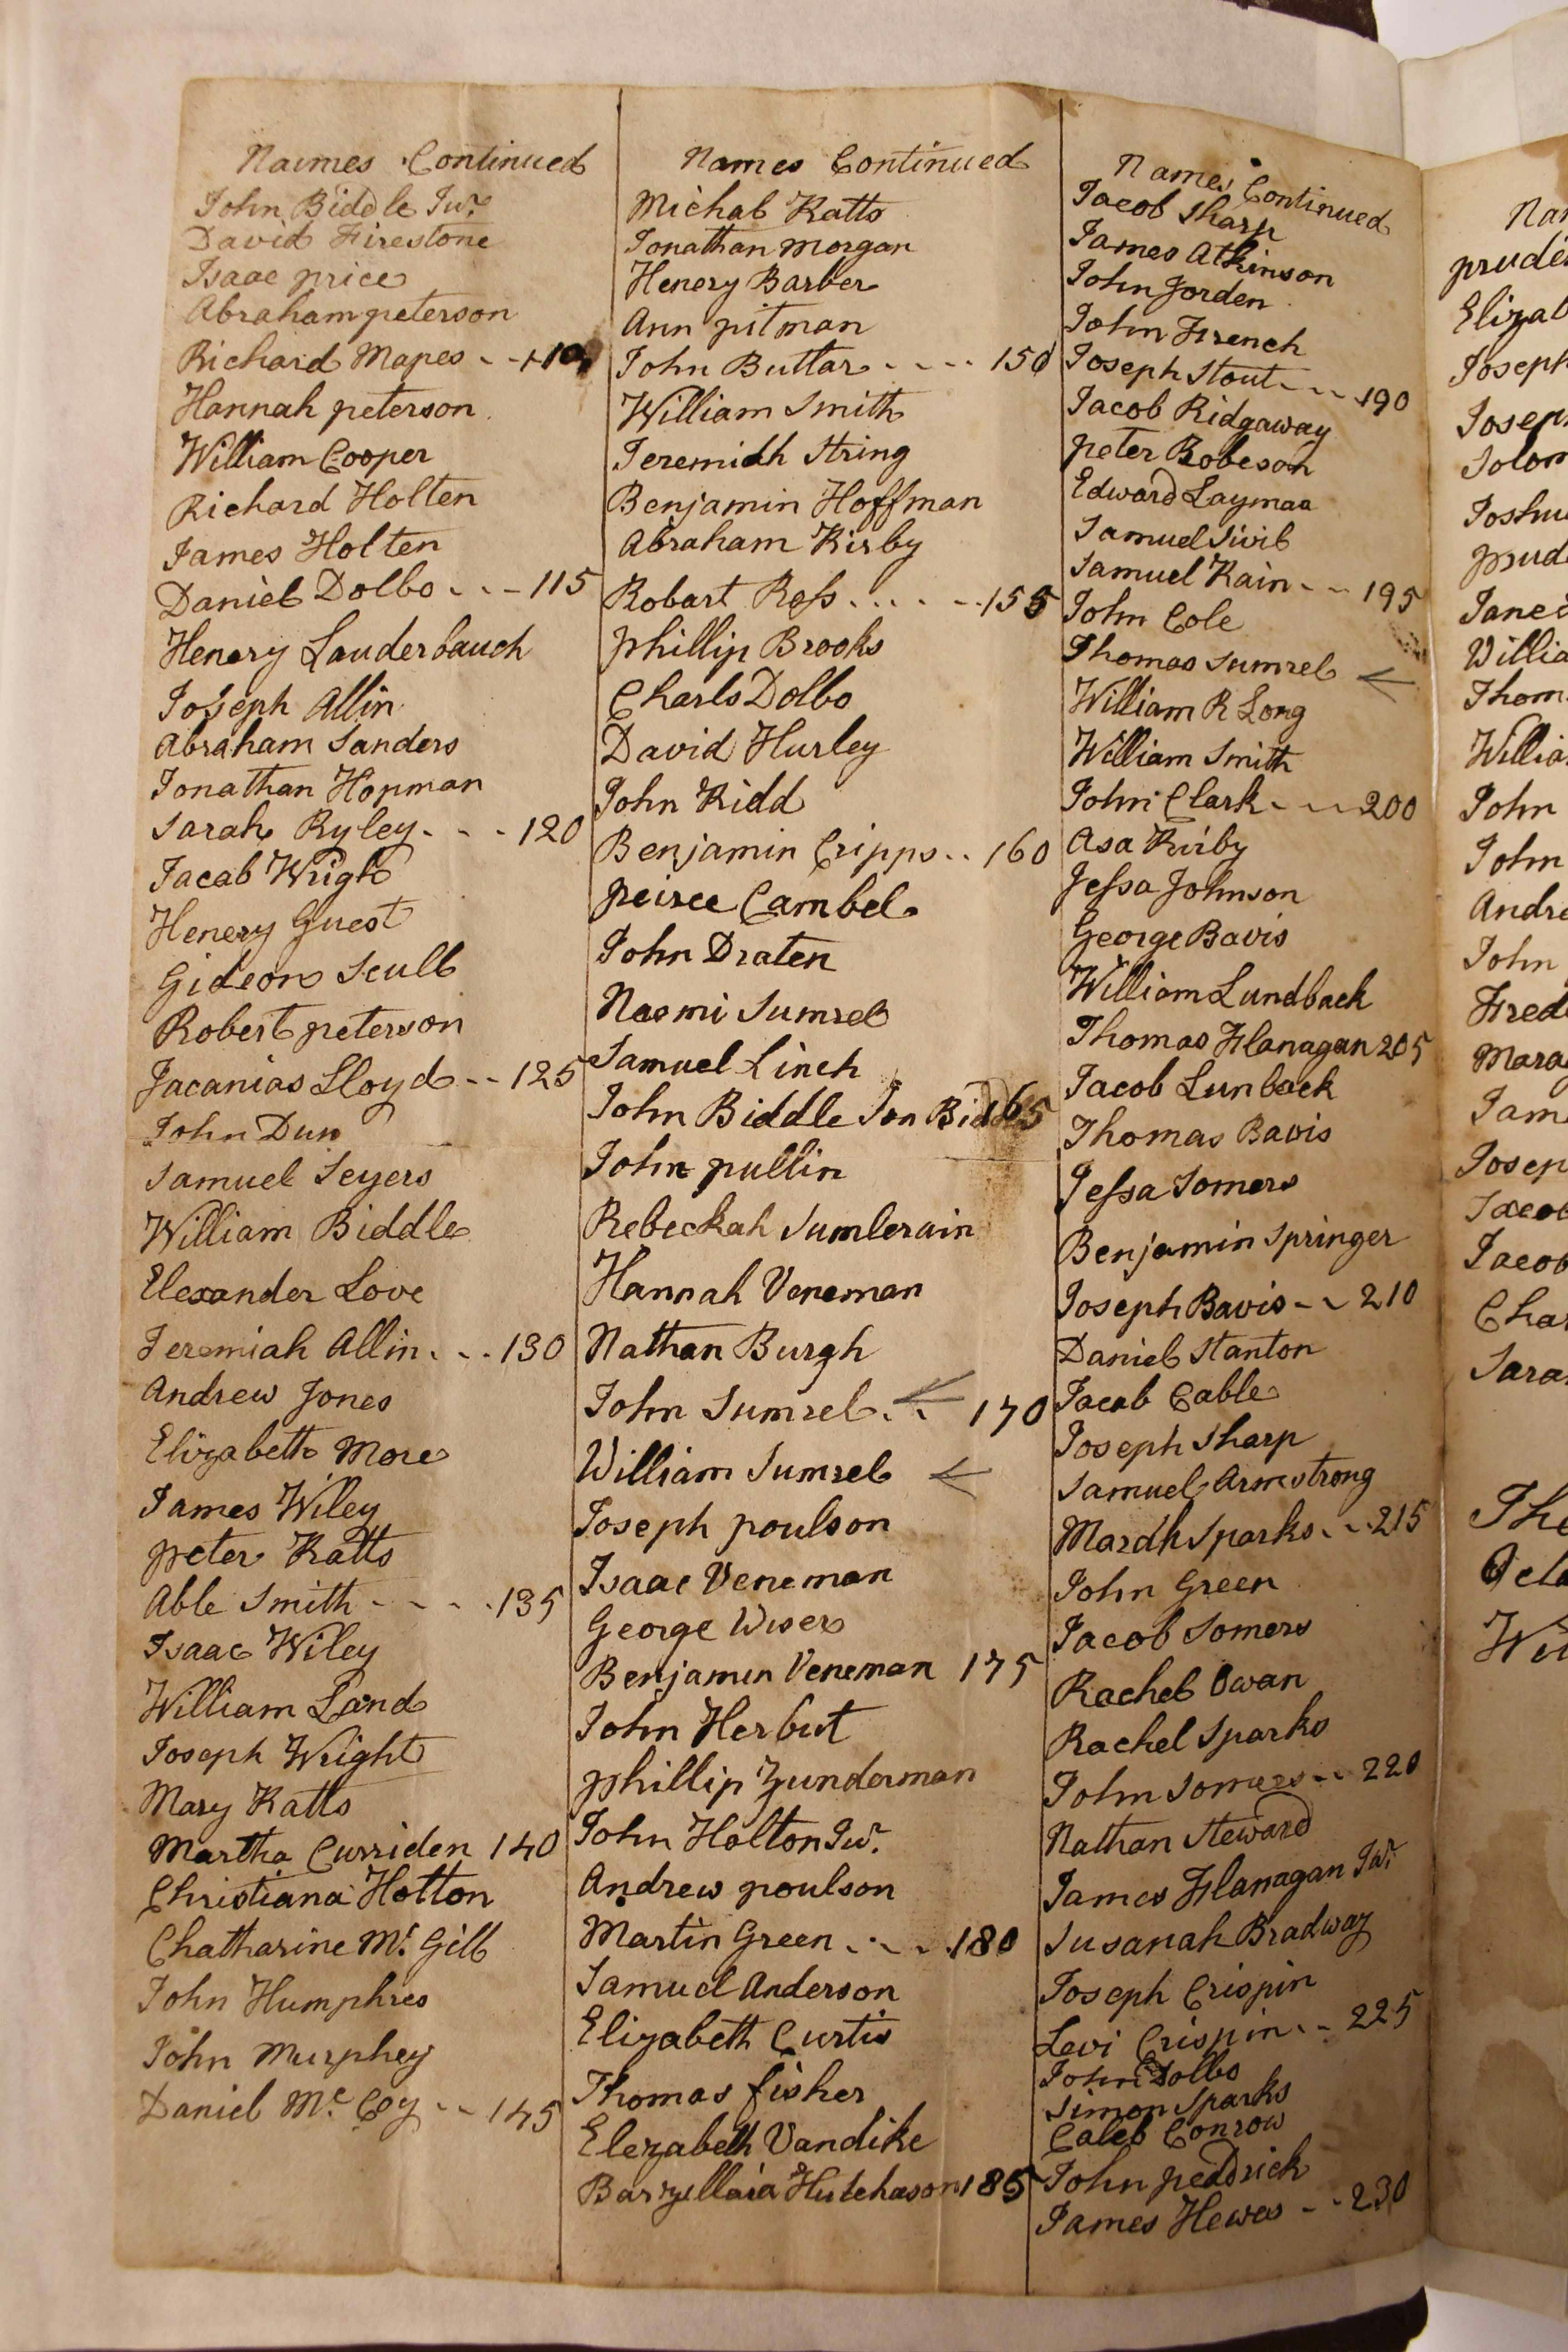 Naimes Continued
John Biddle Junr
David Firestone
Isaac price
Abraham peterson
Richard Mapes - - 110
Hannah peterson
William Cooper
Richard Holten
James Holten
Daniel Dolbo - - - 115
Henery Lauderbauch
Joseph Allin
Abraham Sanders
Jonathan Hopman
Sarah Ryley - - - 120
Jacab Wright
Henery Guest
Gideon Scull
Robert peterson
Jacanias Lloyd - - 125
John Dun
Samuel Seyers
William Biddle
Elexander Love
Jeremiah Allin - - - 130
Andrew Jones
Elizabeth More
James Wiley
peter Katts
Able Smith - - - - 135
Isaac Wiley
William Land
Joseph Wright
Mary Katts
Martha Curriden 140
Christiana Holton
Chatharine Mc Gill
John Humphres
John Murphey
Daniel Mc Coy - - 145
Names Continued
Michal Katts
Jonathan Morgan
Henery Barber
Ann pitman
John Buttar - - - - 150
William Smith
Jeremiah String
Benjamin Hoffman
Abraham Kirby
Robart Ross - - - - - 155
phillip Brooks
Charls Dolbo
David Hurley
John Kidd
Benjamin Cripps - - 160
peirce Cambel
John Draten
Naomi Sumrel
Samuel Linch
John Biddle Son Bid 165
John pullin
Rebeckah Sumlerain
Hannah Veneman
Nathan Burgh
John Sumrel - - 170
William Sumrel
Joseph poulson
Isaac Veneman
George Wiser
Benjamin Veneman 175
John Herbut
phillip Zunderman
John Holton Junr
Andrew poulson
Martin Green - - - 180
Samuel Anderson
Elizabeth Curtis
Thomas fisher
Elezabeth Vandike
Barzellaia Hutchason 185
Names Continued
Jacob Sharp
James Atkinson
John Jorden
John French
Joseph Stout - - - 190
Jacob Ridgaway
peter Robeson
Edward Layman
Samuel Sivil
Samuel Kain - - 195
John Cole
Thomas Sumrel
William R Long
William Smith
John Clark - - - 200
Asa Kirby
Jessa Johnson
George Bavis
William Lundback
Thomas Flanagan 205
Jacob Lunback
Thomas Bavis
Jessa Somers
Benjamin Springer
Joseph Bavis - - 210
Daniel Stanton
Jacob Cable
Joseph Sharp
Samuel Armstrong
Mardh Sparks - - 215
John Green
Jacob Somers
Rachel Owan
Rachel Sparks
John Somers - - 220
Nathan Steward
James Flanagan Junr
Susanah Bradway
Joseph Crispin
Levi Crispin - - 225
John Dolbo
Simon Sparks
Caleb Conrow
John peddrick
James Hewes - - 230